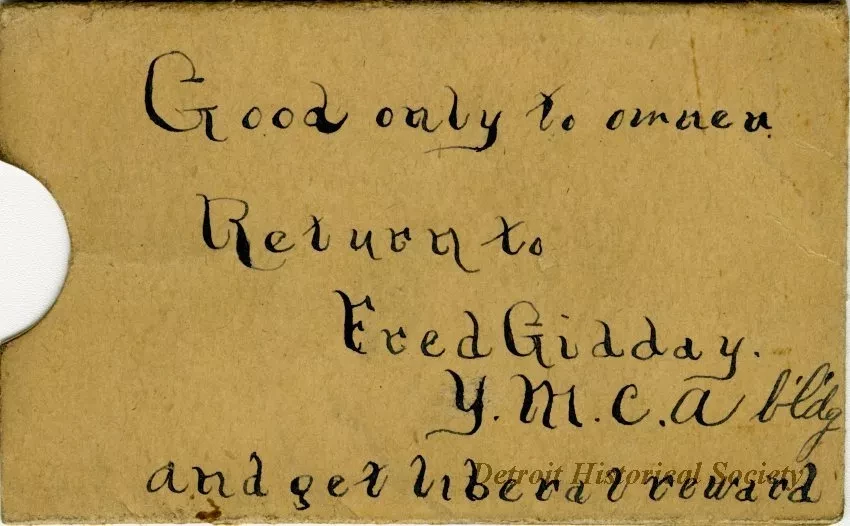 Good only to owner
Return to
Fred Gidday.
Y.M.C.A bldg
and get liberal reward
Detroit Historical Society